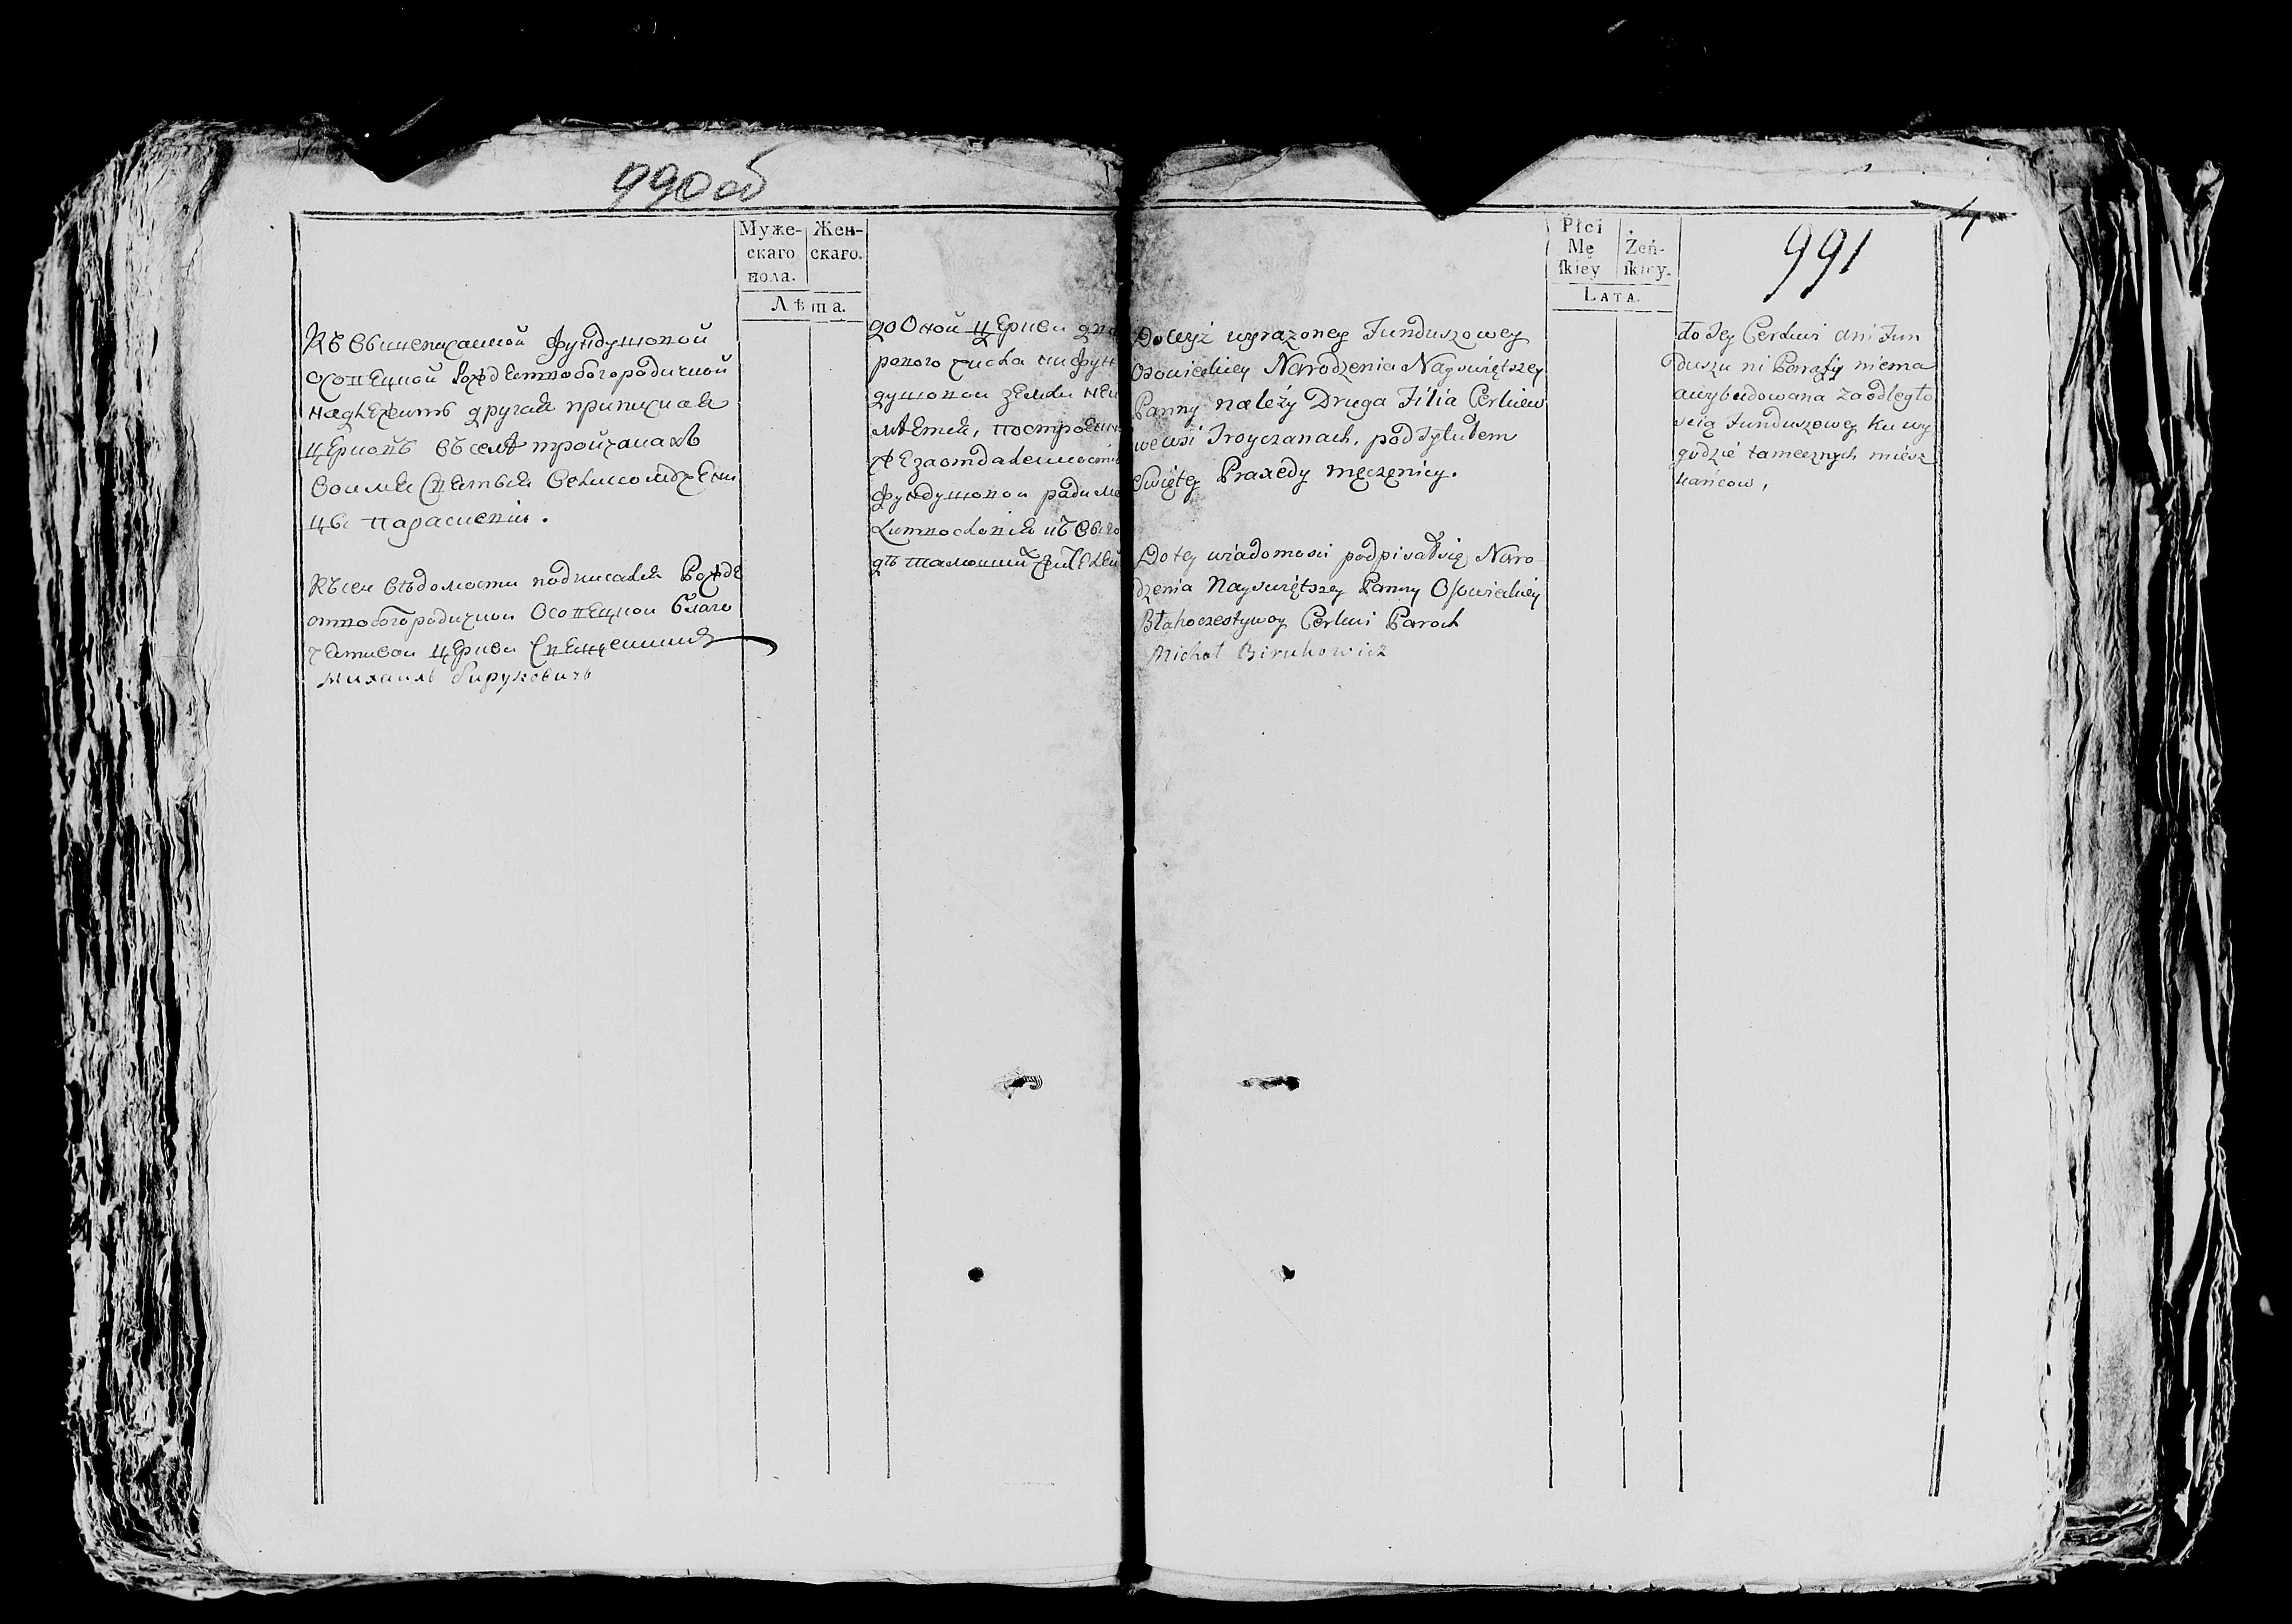 990 об
Муже-
скаго
пола.
Жен-
скаго.
Лѣта.
Къ вышеписанной фундушовой
Осовецкой Рождествобогородичной
надлежитъ другая приписная
церковь въ селѣ тройчанахъ
во имя святыя великомучени
цы параскевіи.
Къ сеи вѣдомости подписался Рожде
ствобогородичнои Осовецкои благо
честивои церкви священникъ
Михаилъ Бируковичъ
до Оной церкви дво
рового числа ни фун
душовои земли не
мѣется, построен
же за отдаленность
фундушовои ради
Płci
Mę
ſkiey
Żeń-
ſkiey.
LATA.
991
Do wyż wyrazoney Funduszowey
Osowieckiey Narodzenia Nayswiętszey
Panny należy Druga Filia Cerkiew
we wsi Troyczanach, pod Tytułem
Swiętey Praxedy męczęnicy.
Do tey wiadomosci podpisał się Naro
dzenia Nayswiętszey Panny Osowieckiey
Błahoczestywoy Cerkwi Paroch
Michał Birukowicz
do Jey Cerkwi ani Fun
duszu ni Parafij niema
a wybudowana za odległo
scią Funduszowey ku wy
godzie tamecznych miesz
kańcow,